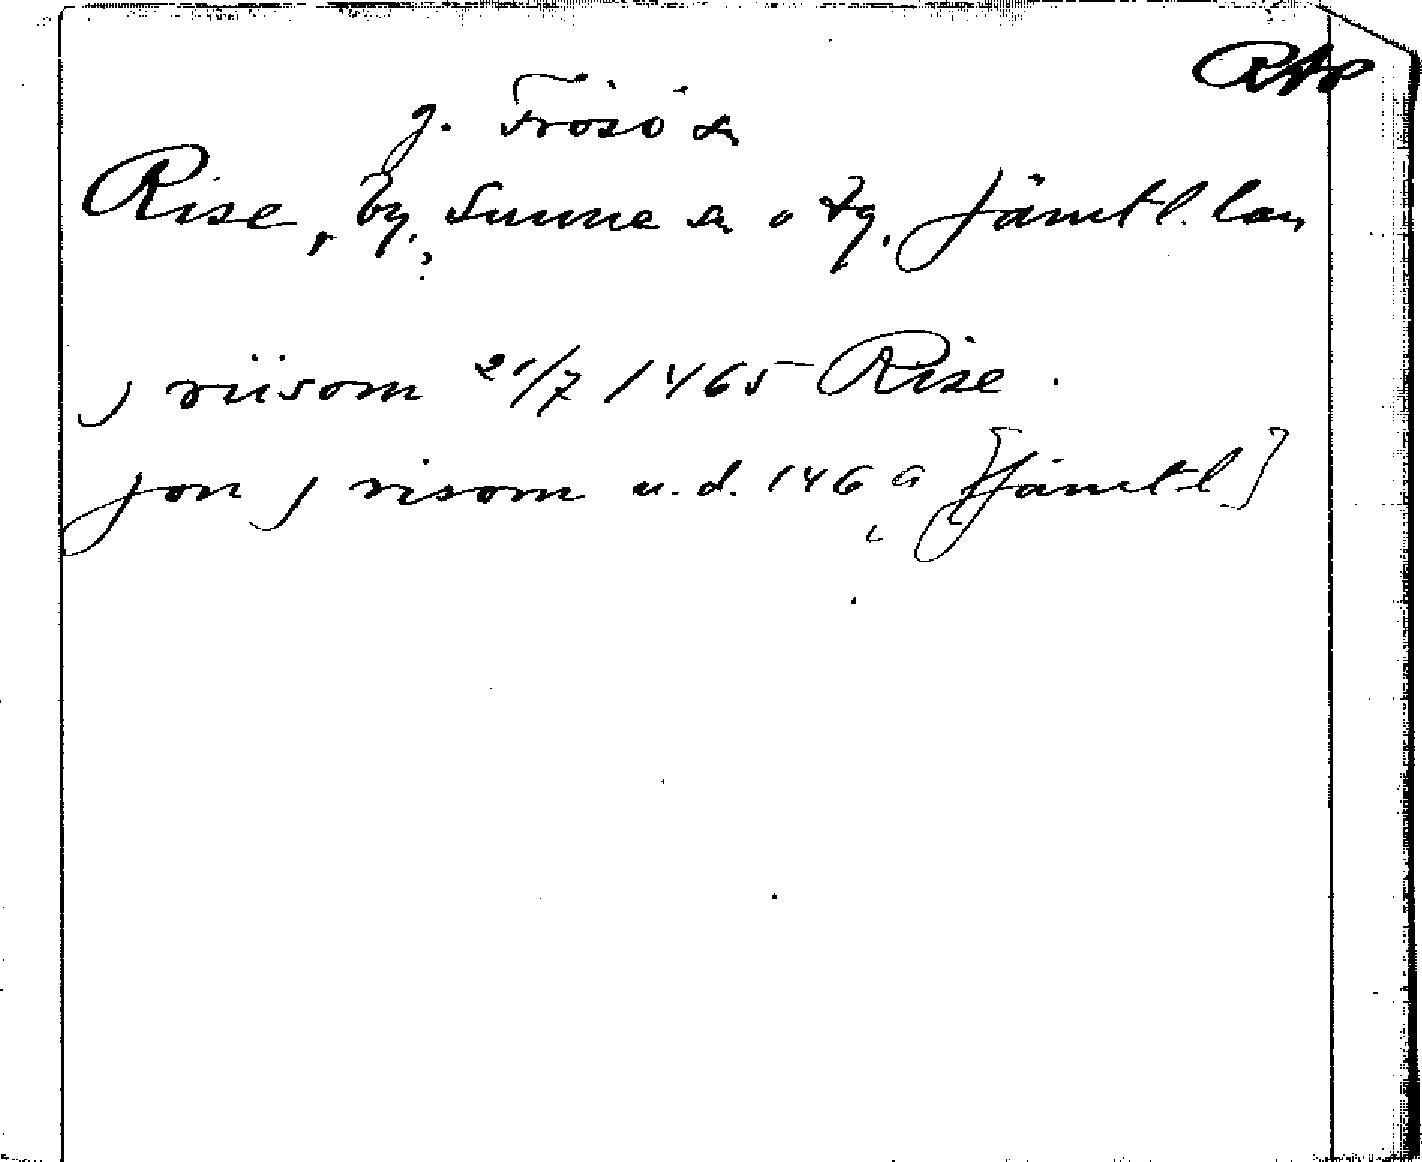 RAP
j. Frösö sn
Rise, by, Sunne sn o tg. Jämtl. län
j riisom 21/7 1465 Rise.
jon j risom u.d. 146 [Jämtl]